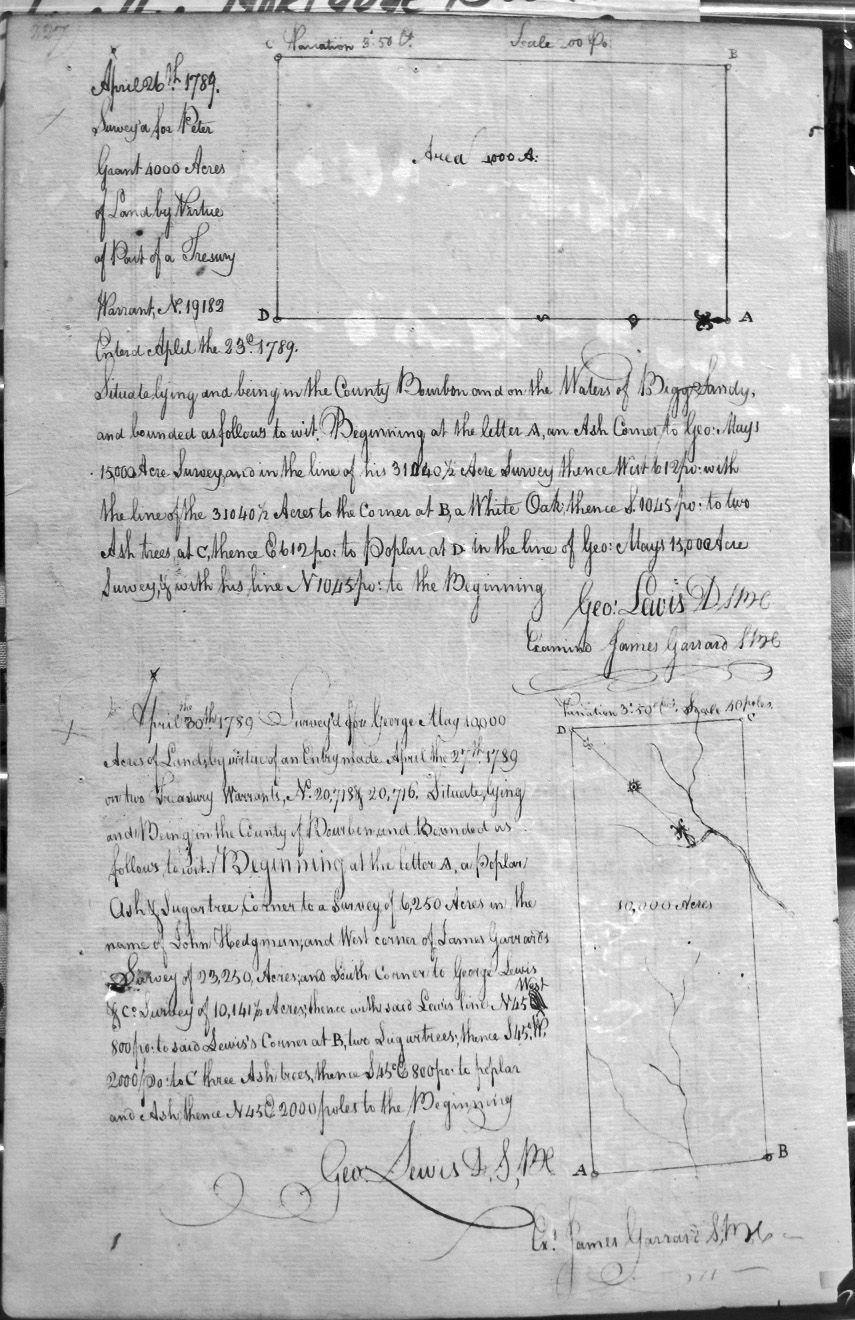 227
C Variation 3°.50' Et. Scale 200 Po:
B
April 26th 1789.
Survey'd for Peter
Grant 4000 Acres
of Land by Virtue
of Part of a Tresury
Warrant, No. 19182
Enterd Aplil the 23d. 1789.
Area 4000 A:
D
A
Situate lying and being in the County Bourbon and on the Waters of Bigg Sandy,
and bounded as follows to wit. Beginning at the letter A, an Ash Corner to Geo: Mays
15,000 Acre Survey, and in the line of his 31040½ Acre Survey thence West 612 po: with
the line of the 31040½ Acres to the Corner at B, a White Oak, thence S. 1045 po: to two
Ash trees, at C, thence E 612 po: to Poplar at D in the line of Geo: Mays 15,000 Acre
Survey, & with his line N 1045 po: to the Beginning
Geo: Lewis D.S.BC
Examind James Garrard S.BC
April the 30th 1789 Survey'd for George May 10,000
Acres of Land by virtue of an Entry made April the 27th 1789
on two Treasury Warrants, No. 20,718 & 20,716. Situate, lying
and Being in the County of Bourbon and Bounded as
follows, to wit. Beginning at the letter A, a poplar
Ash & Sugartree, Corner to a Survey of 6,250 Acres in the
name of John Hedgman; and West corner of James Garrards
Survey of 23,250, Acres; and South Corner to George Lewis
& Co. Survey of 10,141½ Acres; thence with said Lewis line N 45 West
800 po: to said Lewis's Corner at B, two Sugartrees; thence S 45°. W.
2000 po: to C three Ash trees, thence S 45° E 800 po: to poplar
and Ash, thence N 45 E 2000 poles to the Beginning
Geo: Lewis D, S, BC
Ex'd James Garrard S, BC
Variation 3°.50' Scale 40 poles.
D
C
10,000 Acres
A
B